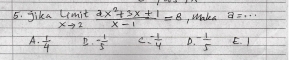 5. Jika limit x→2 ax²+3x+1 / x-1 = 8, maka a=...
A. 1/4 B. -1/5 C. -1/4 D. -1/5 E. 1